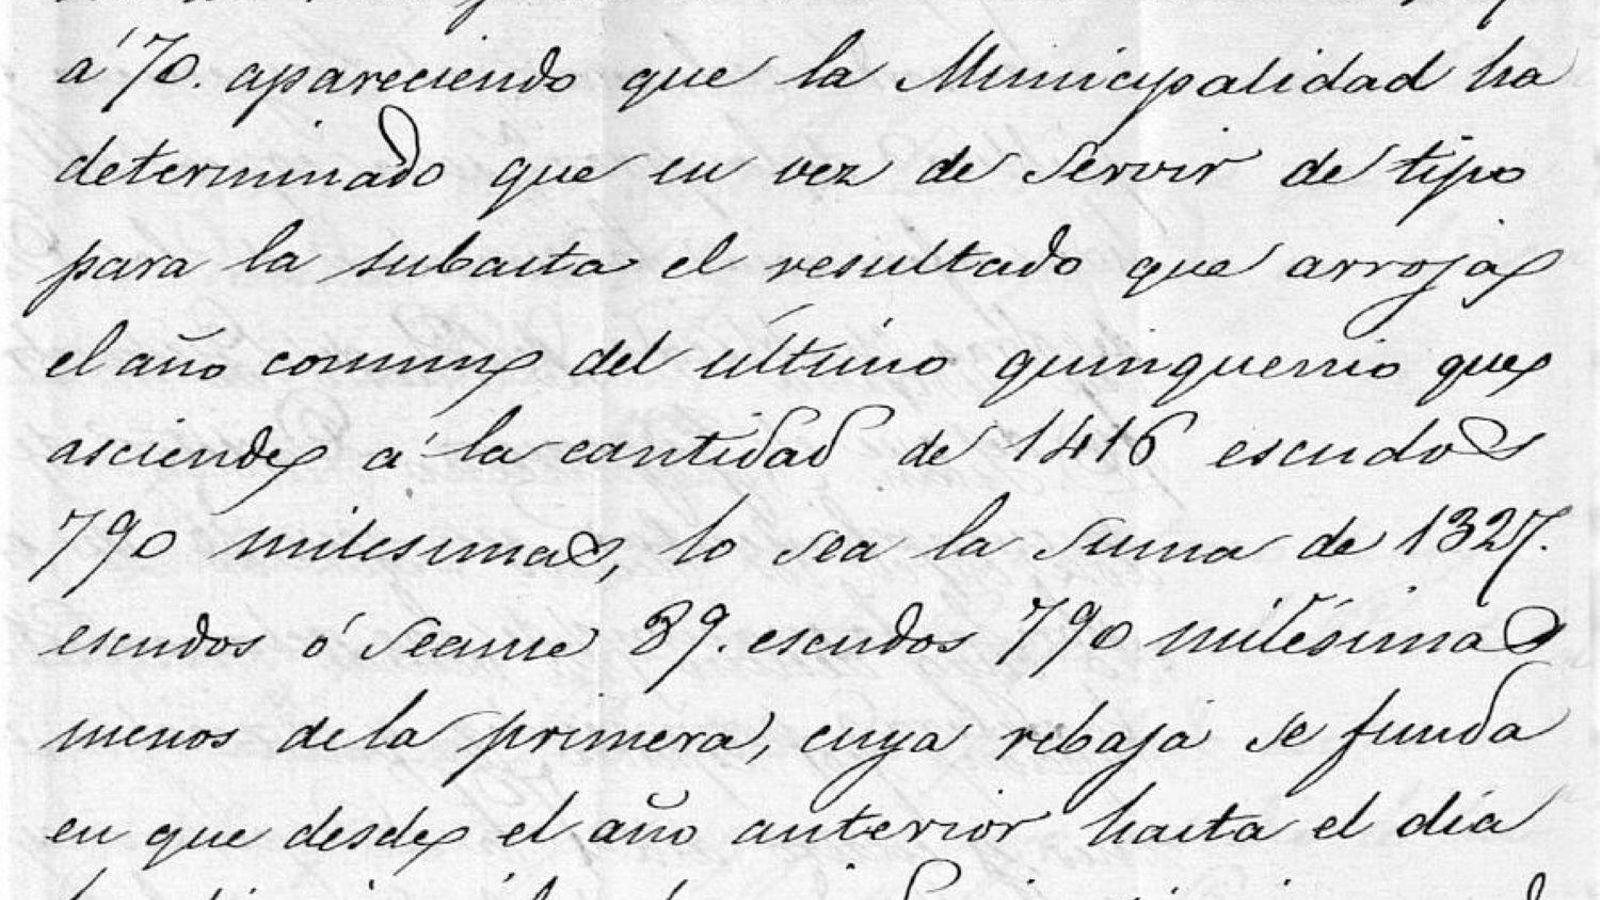 á 70. apareciendo que la Municipalidad ha
determinado que en vez de servir de tipo
para la subasta el resultado que arroja
el año comun del ultimo quinquenio que
asciende á la cantidad de 1416 escudos
790 milesimas, lo sea la suma de 1327.
escudos ó seanse 89. escudos 790 milésimas
menos de la primera, cuya rebaja se funda
en que desde el año anterior hasta el dia